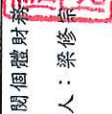 閱個體財務
人：梁修